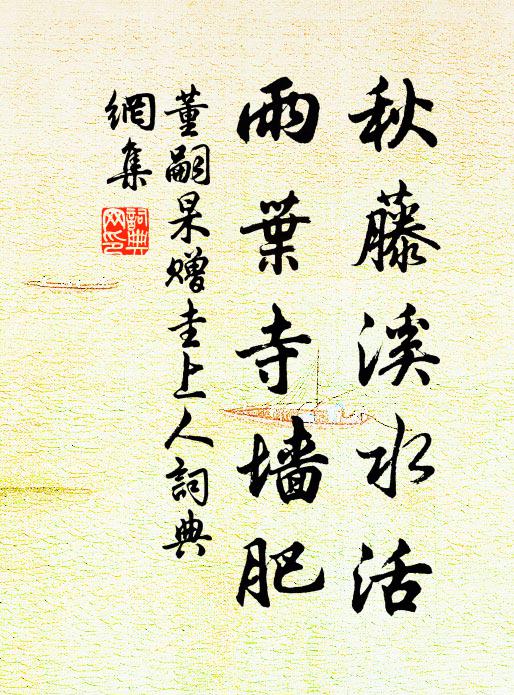 秋藤溪水活
雨葉寺墻肥
董嗣杲贈圭上人詞典
網集
詞典
网印